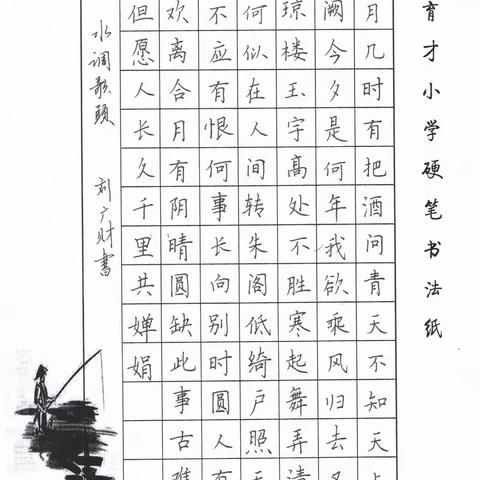 育才小学硬笔书法纸
月几时有把酒问青天不知天
阙今夕是何年我欲乘风归去
琼楼玉宇高处不胜寒起舞弄清
何似在人间转朱阁低绮户照无
不应有恨何事长向别时圆人有
欢离合月有阴晴圆缺此事古难
但愿人长久千里共婵娟
水调歌頭 刘广财書